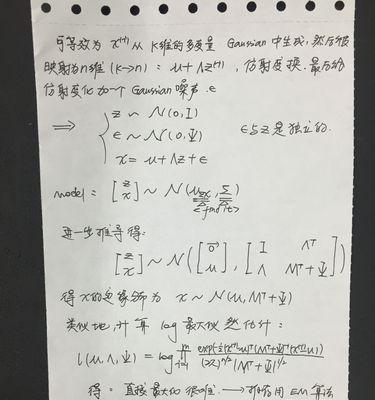 可等效为 x⁽ⁱ⁾ 从 K维的多变量 Gaussian 中生成, 然后被
映射为n维 (K→n) : μ+Λz⁽ⁱ⁾ , 仿射变换. 最后给
仿射变化加一个 Gaussian 噪声 ϵ
⟹ { z ~ N(0,I)
ϵ ~ N(0,Ψ) ϵ与z是独立的.
x = μ+Λz+ϵ
model = [z x] ~ N(μzx, Σ)
<find it>
进一步推导得:
[z x] ~ N([0⃗ μ], [I Λᵀ Λ ΛΛᵀ+Ψ])
得 x的边缘分布为 x ~ N(μ, ΛΛᵀ+Ψ)
类似地, 计算 log 最大似然估计:
l(μ,Λ,Ψ) = log ∏ᵢ₌₁ᵐ exp(-½(x⁽ⁱ⁾-μ)ᵀ(ΛΛᵀ+Ψ)⁻¹(x⁽ⁱ⁾-μ)) / (2π)ⁿᐟ²|ΛΛᵀ+Ψ|¹ᐟ²
得: 直接最大化很难. → 可用 EM 算法